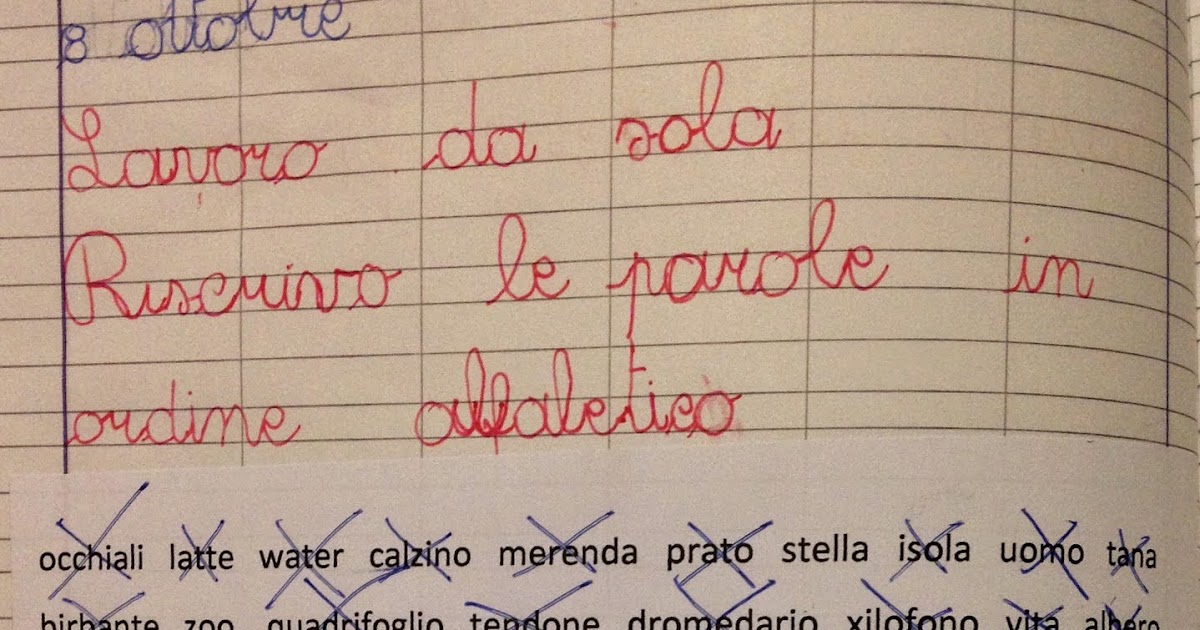 8 ottobre
Lavoro da sola
Riscrivo le parole in
ordine alfabetico
occhiali latte water calzino merenda prato stella isola uomo tana
birbante zoo quadrifoglio tendone dromedario xilofono vita albero